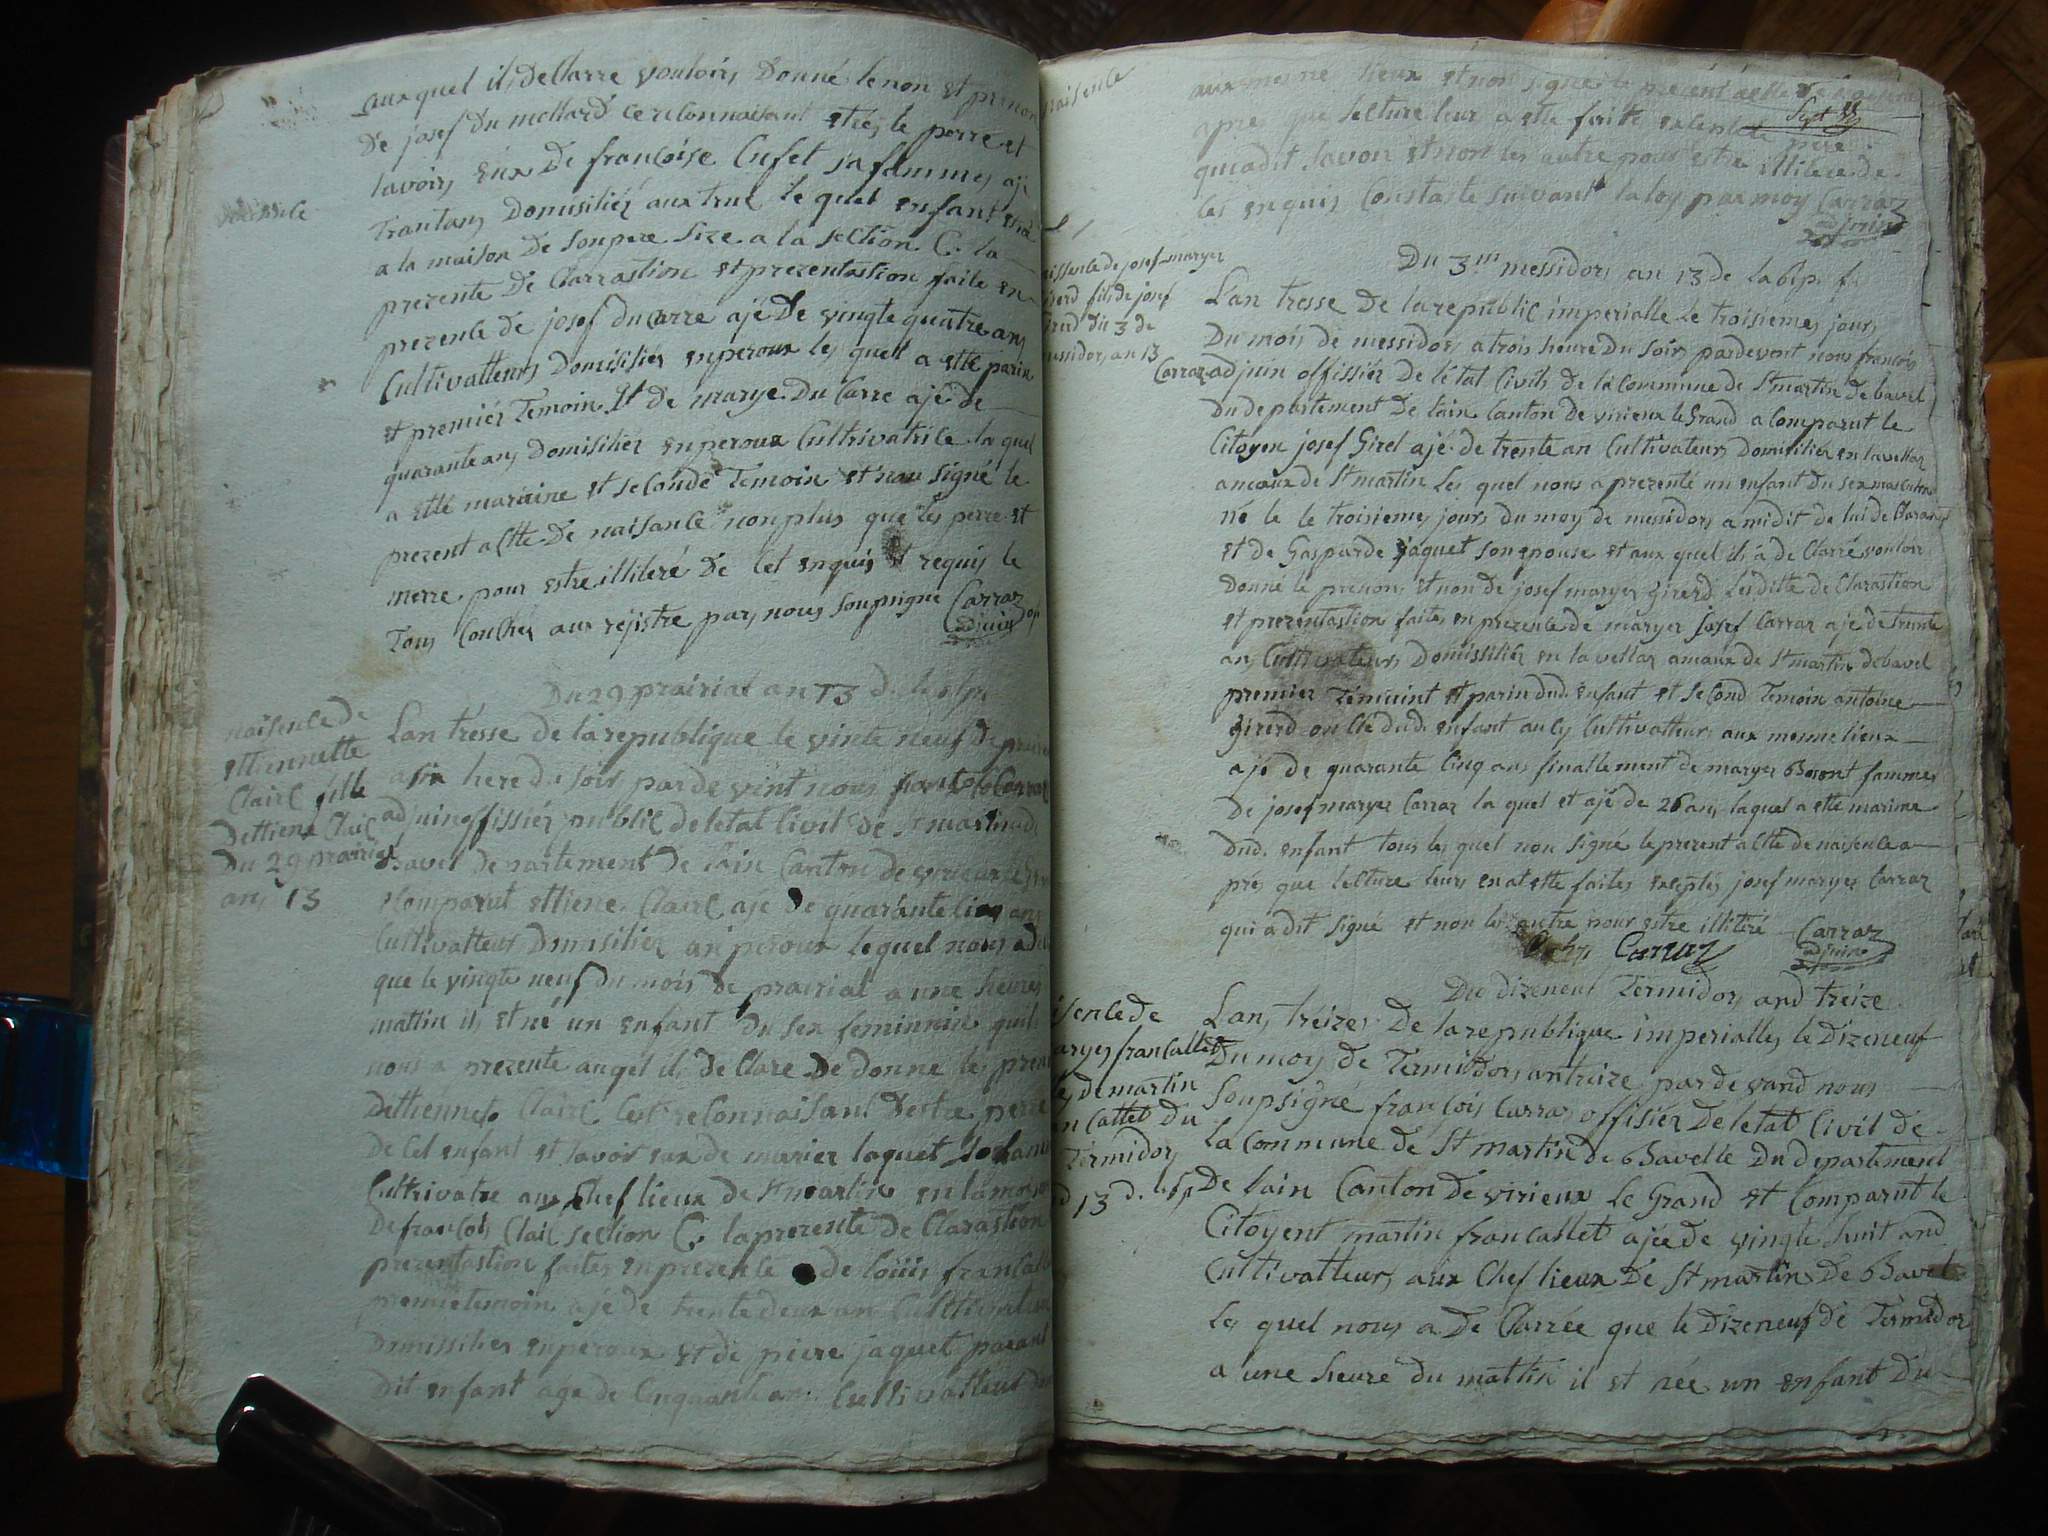 auxquel ils deClarre vouloirs donné le non et prenon
de josef du mollard ce reconnaisant etres le perre et
lavoirs eux de francoise Cufet sa fammes ajé
trantans domisiliér aux truc le quel enfant est né
naissence
a la maison de son pere size a la section C. la
prezente de Clarrastion et prezentastion faite en
prezence de josef du Carre ajé de vingte quatre ans
Cultivatteurs domisiliés en peroux les quell a ette parin
et premiér temoin et de marye du Carre ajé de
quarante ans domisiliér en peroux Cultrivatrice la quel
a ette maraine et seconde temoin et non signé le
prezent actte de naisance non plus que les perre et
merre pour estre illiteré de cet enquis et requis le
tous couches aux rejistre pars nous soupsigne Carraz
adjuins
Du 29 prairial an 13 d. la rép
naisence de
ettiennette
Clairc fille
dettiene Clairc
du 29 prairial
ans 13
Lan tresse de la republique le vinte neuf de prairial
a six here du soir par de vent nous francois Carraz
adjuing offissiér public de letat Civil de St martin de
Bavel departement de lain Canton de virieux le Grand
a Comparut ettiene Clairc ajé de quarante cinq ans
Cultivatteur domisiliér an peroux lequel nous a dit
que le vingte neuf du mois de prairial a une heures
mattin ils et né un enfant du sex feminnin quils
nous a prezente auqel ils de Clare de donne les prenon
dettiennete Clairc ceст reconnaisant destre perre
de cet enfant et lavoir eux de marier jaquet sa fame
Cultrivatre aux Chef lieux de St martin en la maison
de francois Clairc section C. la prezente de Clarastion
prezentastion faites en prezence de loüis francallet
premie temoin ajé de trente deux an Cultivateur
domissilier en peroux et de piere jaquet parant
dit enfant age de Cinquante an Cultivatteur
naisence
aux mesme lieux et non signé le prezent actte de naisence
apres que lecture leur a ette faitte exsepte le pere
qui a dit savoir et non les autre pour estre illitere de
ces enquis Constaste suivant la loy par moy Carraz
adjuins
Du 3me messidors an 13 de la Rép. f.
naissence de josef maryer
girerd fils de josef
girerd du 3 de
messidors an 13
Lan tresse de la republic imperialle le troisiemes jours
du mois de messidors a trois heure du soirs pardevent nous francois
Carraz adjuin offissiér de létat Civils de la commune de St martin de bavel
du departement de lain Canton de virieux le Grand a Comparut le
Citoyen josef Girel ajé de trente an Cultivateurs domisiliér en lavellaz
ameaux de St martin Les quel nous a prezenté un enfant du sex masculin
né le le troisiemes jours du moy de messidors a midit de lui de Clarant
et de Gasparde jaquet son epouse et aux quel ils a de Clarré vouloir
donné le prenon et non de josef maryer girerd Lesditte de Clarastion
et prezentastion faites en prezence de maryer josef Carraz ajé de trente
ans Cultivateurs domissiliér en lavellaz ameaux de St martin de bavel
premier temoint et parin dud. enfant et second temoin antoine
girerd oncle dud. enfant aucy Cultivatteurs aux mesme lieux
ajé de quarante Cinq ans finallement de maryer Boront fammes
de josef maryer Carraz la quel et ajé de 26 ans laquel a ette marine
dud. enfant tous les quel non signé le prezent actte de naisence a
prés que lecture leurs en at ette faites exceptes josef maryer Carraz
qui a dit signé et non les autre pour estre illitéré Carraz
adjuins
Carraz
Du dizeneuf termidors and treize
naisence de
maryer francallet
fils de martin
francallet du
19 termidors
and 13 d. la Rép
Lans treizes de la republique imperialles le dizeneuf
du moy de termidors an treize par de vand nous
soupsigné françois Carraz offisiér de letat Civil de
la Commune de St martin de Bavelle du departement
de lain Canton de virieux le Grand et Comparut le
Citoyent martin francallet ajée de vingte huit and
Cultivatteurs aux Chef lieux de St martin de Bavel
les quel nous a de Clarrée que le dizeneuf de termidor
a une heure du mattin il et née un enfant du